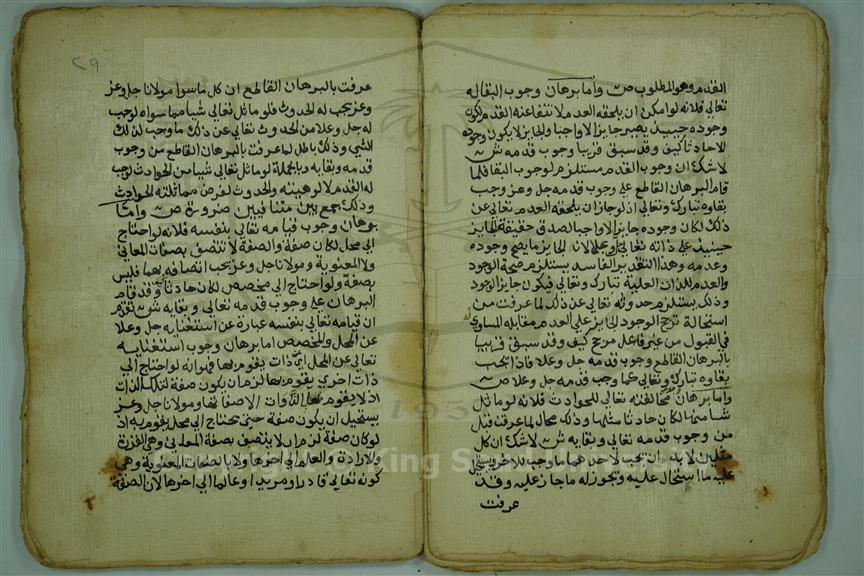 القدم وهو المطلوب ص وأما برهان وجوب البقا له
تعالى فلانه لو امكن ان يلحقه العدم لانتفا عنه القدم لكون
وجوده حينيذ يصير جايزا لا واجبا والجايز لا يكون وجوده
الا حادثا كيف وقد سبق قريبا وجوب قدمه ش
لا شك ان وجوب القدم مستلزم لوجوب البقا فلما
قام البرهان القاطع على وجوب قدمه جل وعز وجب
بقاوه تبارك وتعالى اذ لو جاز ان يلحقه العدم تعالى عن
ذلك لكان وجوده جايزا لا واجبا لصدق حقيقة الجايز
حينيذ على ذاته تعالى وجل لان الجايز ما يصح وجوده
وعدمه وهذا التقدير الفاسد يستلزم صحة الوجود
والعدم للذات العلية تبارك وتعالى فيكون جايز الوجود
وذلك يستلزم حدوثه تعالى عن ذلك لما عرفت من
استحالة ترجح الوجود الجايز على العدم مقابله المساوي له
في القبول من غير فاعل مرجح كيف وقد سبق قريبا
بالبرهان القاطع وجوب قدمه جل وعلا فاذا يجب
بقاوه تبارك وتعالى كما وجب قدمه جل وعلا ص
وأما برهان مخالفته تعالى للحوادث فلانه لو ماثل
شيا منها لكان حادثا مثلها وذلك محال لما عرفت قبل
من وجوب قدمه تعالى وبقايه ش لا شك ان كل
مثلين لا بد ان يجب لاحدهما ما وجب للاخر ويستحيل
عليه ما استحال عليه ويجوز له ما جاز عليه وقد
عرفت
٢٩
عرفت بالبرهان القاطع ان كل ما سوا مولانا جل وعز
وعز يجب له الحدوث فلو ماثل تعالى شيا مما سواه لوجب
له جل وعلا من الحدوث تعالى عن ذلك ما وجب لذلك
الشي وذلك باطل لما عرفت بالبرهان القاطع من وجوب
قدمه وبقايه وبالجملة لو ماثل تعالى شيا من الحوادث لوجب
له القدم لالوهيته والحدوث لفرض مماثلته للحوادث
وذلك جمع بين متنافيين ضرورة ص وأما
برهان وجوب قيامه تعالى بنفسه فلانه لو احتاج
الى محل لكان صفة والصفة لا تتصف بصفات المعاني
ولا المعنوية ومولانا جل وعز يجب اتصافه بهما فليس
بصفة ولو احتاج الى مخصص لكان حادثا وقد قام
البرهان على وجوب قدمه تعالى وبقايه ش تقدم
ان قيامه تعالى بنفسه عبارة عن استغنايه جل وعلا
عن المحل والمخصص اما برهان وجوب استغنايه
تعالى عن المحل اي ذات يقوم بها فهو انه لو احتاج الى
ذات اخرى يقوم بها لزم ان يكون صفة لتلك الذات
اذ لا يقوم بالذات الا صفاتها ومولانا جل وعز
يستحيل ان يكون صفة حتى يحتاج الى محل يقوم به اذ
لو كان صفة لزم ان لا يتصف بصفة المعاني وهي القدرة
والارادة والعلم الى اخرها ولا بالصفات المعنوية وهي
كونه تعالى قادرا ومريدا وعالما الى اخرها لان الصفة